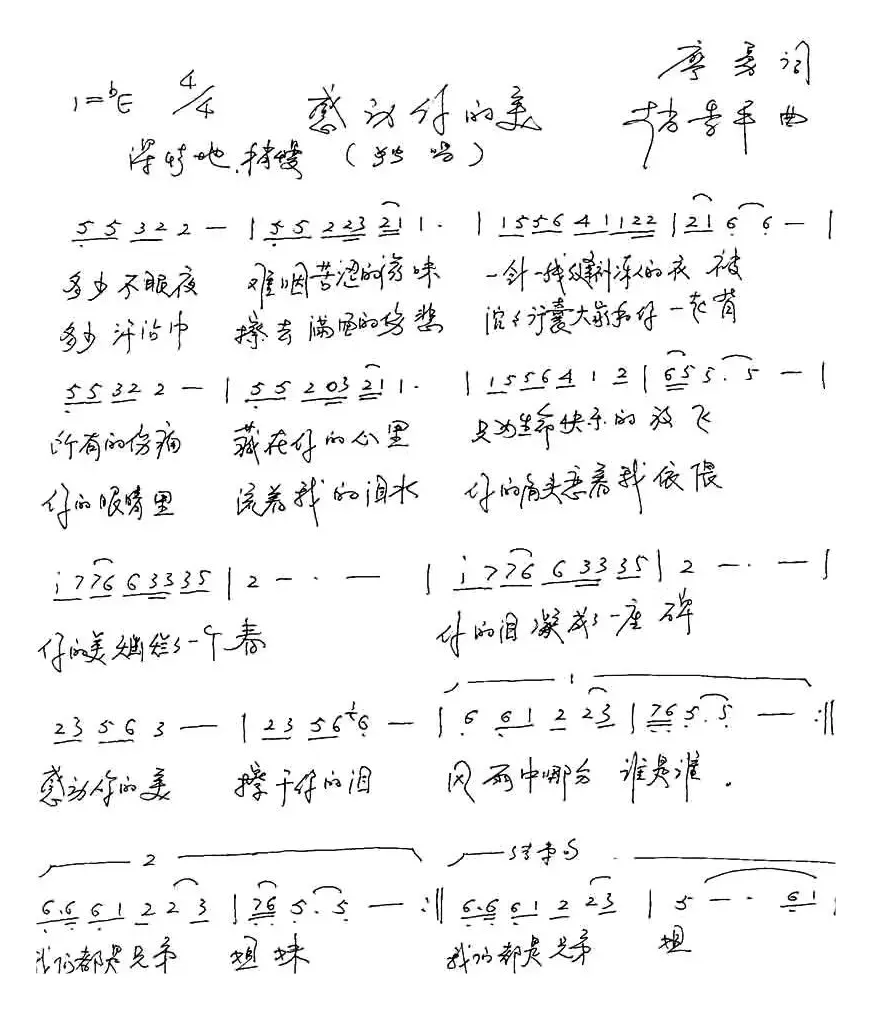 1=bE 4/4 感动你的美 词
深情地、稍慢 曲
5 5 3 2 2 — | 5 5 2 2 3 2 1 1 · | 1 5 5 6 4 1 1 2 2 | 2 1 6 6 — |
多少不眠夜 难咽苦涩的滋味 一针一线缝制深深的衣被
多少汗泊中 擦去满面的伤悲 沉沉行囊大家和你一起背
5 5 3 2 2 — | 5 5 2 0 3 2 1 1 · | 1 5 5 6 4 1 2 | 6 5 5 · 5 — |
所有的伤痛 藏在你的心里 只为生命快乐的放飞
你的眼睛里 流着我的泪水 你的肩头 着我依偎
i 7 7 6 6 3 3 3 5 | 2 — · — | i 7 7 6 6 3 3 3 5 | 2 — · — |
你的美灿烂了一个春 你的泪凝成了一座碑
1
2 3 5 6 3 — | 2 3 5 6 1 6 — | 6 6 1 2 2 3 | 7 6 5 · 5 — :||
感动你的美 擦干你的泪 风雨中哪分 谁是谁。
2 结束句
6 · 6 6 1 2 2 3 | 7 6 5 · 5 — :|| 6 · 6 6 1 2 2 3 | 5 — · 6 1 |
我们都是兄弟 姐妹 我们都是兄弟 姐